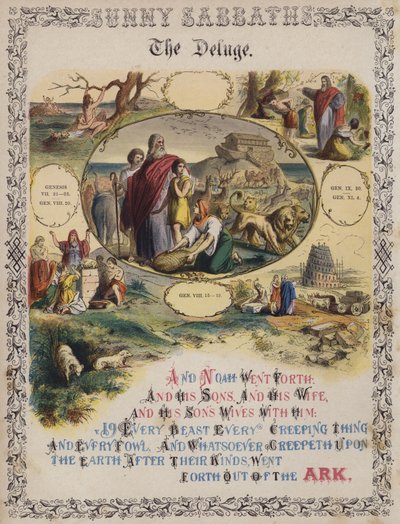 SUNNY SABBATHS
The Deluge.
GENESIS
VII. 21—23.
GEN. VIII. 20.
GEN. IX. 20.
GEN. XI. 4.
GEN. VIII. 15—19.
AND NOAH WENT FORTH,
AND HIS SONS, AND HIS WIFE,
AND HIS SONS WIVES WITH HIM:
19 EVERY BEAST EVERY CREEPING THING
AND EVERY FOWL. AND WHATSOEVER CREEPETH UPON
THE EARTH, AFTER THEIR KINDS, WENT
FORTH OUT OF THE ARK.